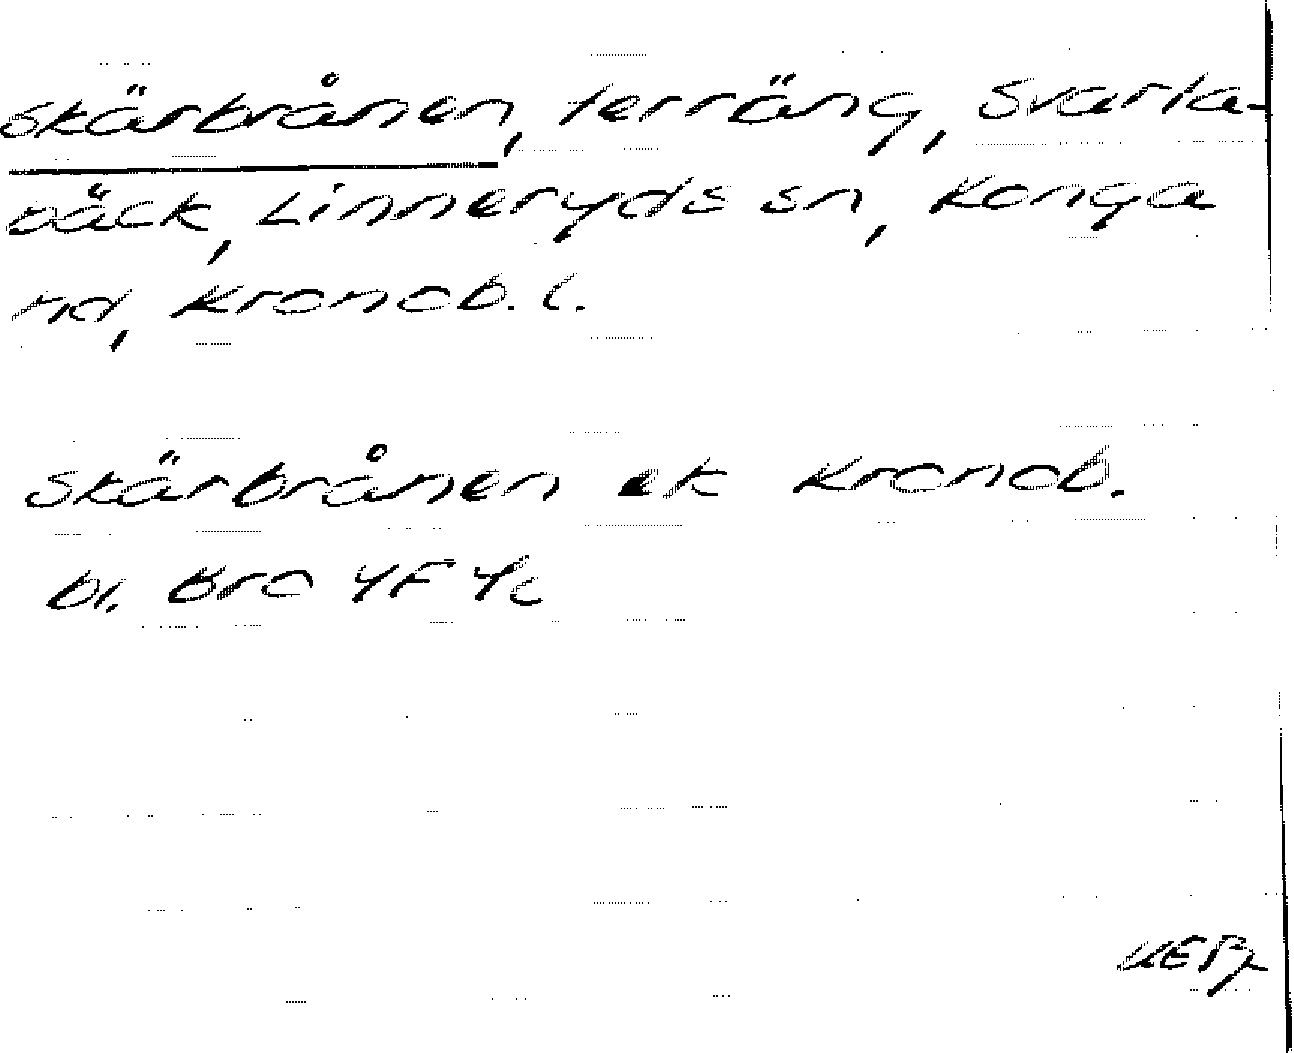 Skärbrånen, terräng, Svarta-
bäck, Linneryds sn, Konga
hd, Kronob. l.
Skärbrånen ek Kronob.
bl. Bro 4F 4c